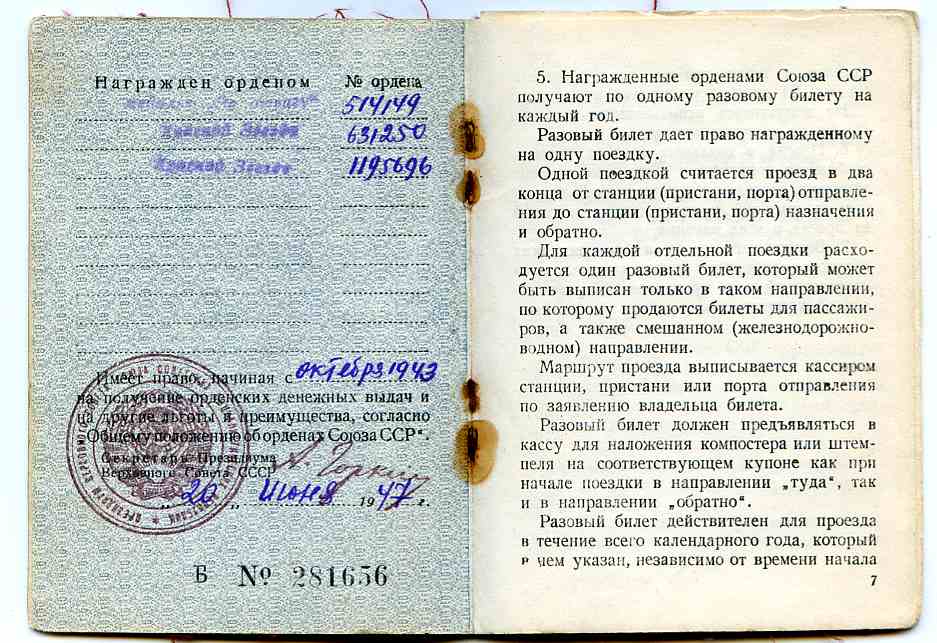 Награжден орденом № ордена
медалью „За отвагу“ 514149
Красной Звезды 631250
Красная Звезда 1195696
Имеет право, начиная с октября 1943
на получение орденских денежных выдач и
на другие льготы и преимущества, согласно
„Общему положению об орденах Союза ССР“.
Секретарь Президиума
Верховного Совета СССР А. Горкин
„20„ Июня 1947 г.
Б № 281656
5. Награжденные орденами Союза ССР
получают по одному разовому билету на
каждый год.
Разовый билет дает право награжденному
на одну поездку.
Одной поездкой считается проезд в два
конца от станции (пристани, порта) отправле-
ния до станции (пристани, порта) назначения
и обратно.
Для каждой отдельной поездки расхо-
дуется один разовый билет, который может
быть выписан только в таком направлении,
по которому продаются билеты для пассажи-
ров, а также смешанном (железнодорожно-
водном) направлении.
Маршрут проезда выписывается кассиром
станции, пристани или порта отправления
по заявлению владельца билета.
Разовый билет должен предъявляться в
кассу для наложения компостера или штем-
пеля на соответствующем купоне как при
начале поездки в направлении „туда“, так
и в направлении „обратно“.
Разовый билет действителен для проезда
в течение всего календарного года, который
в чем указан, независимо от времени начала
7